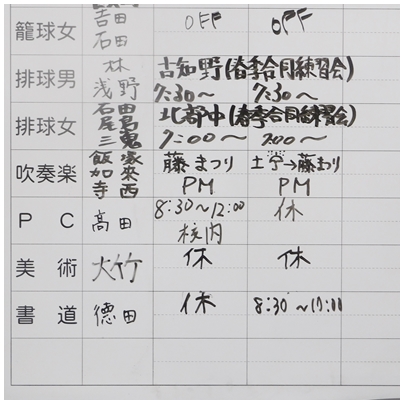 吉田
籠球女 石田 OFF OFF
排球男 林 浅野 古知野(春季合同練習会)
7:30〜 7:30〜
排球女 石田 尾島 三鬼 北部中(春季合同練習会)
7:00〜 7:00〜
吹奏楽 飯家 加来 寺西 藤まつり
PM PM
PC 高田 8:30〜12:00 休
校内
美術 大竹 休 休
書道 徳田 休 8:30〜